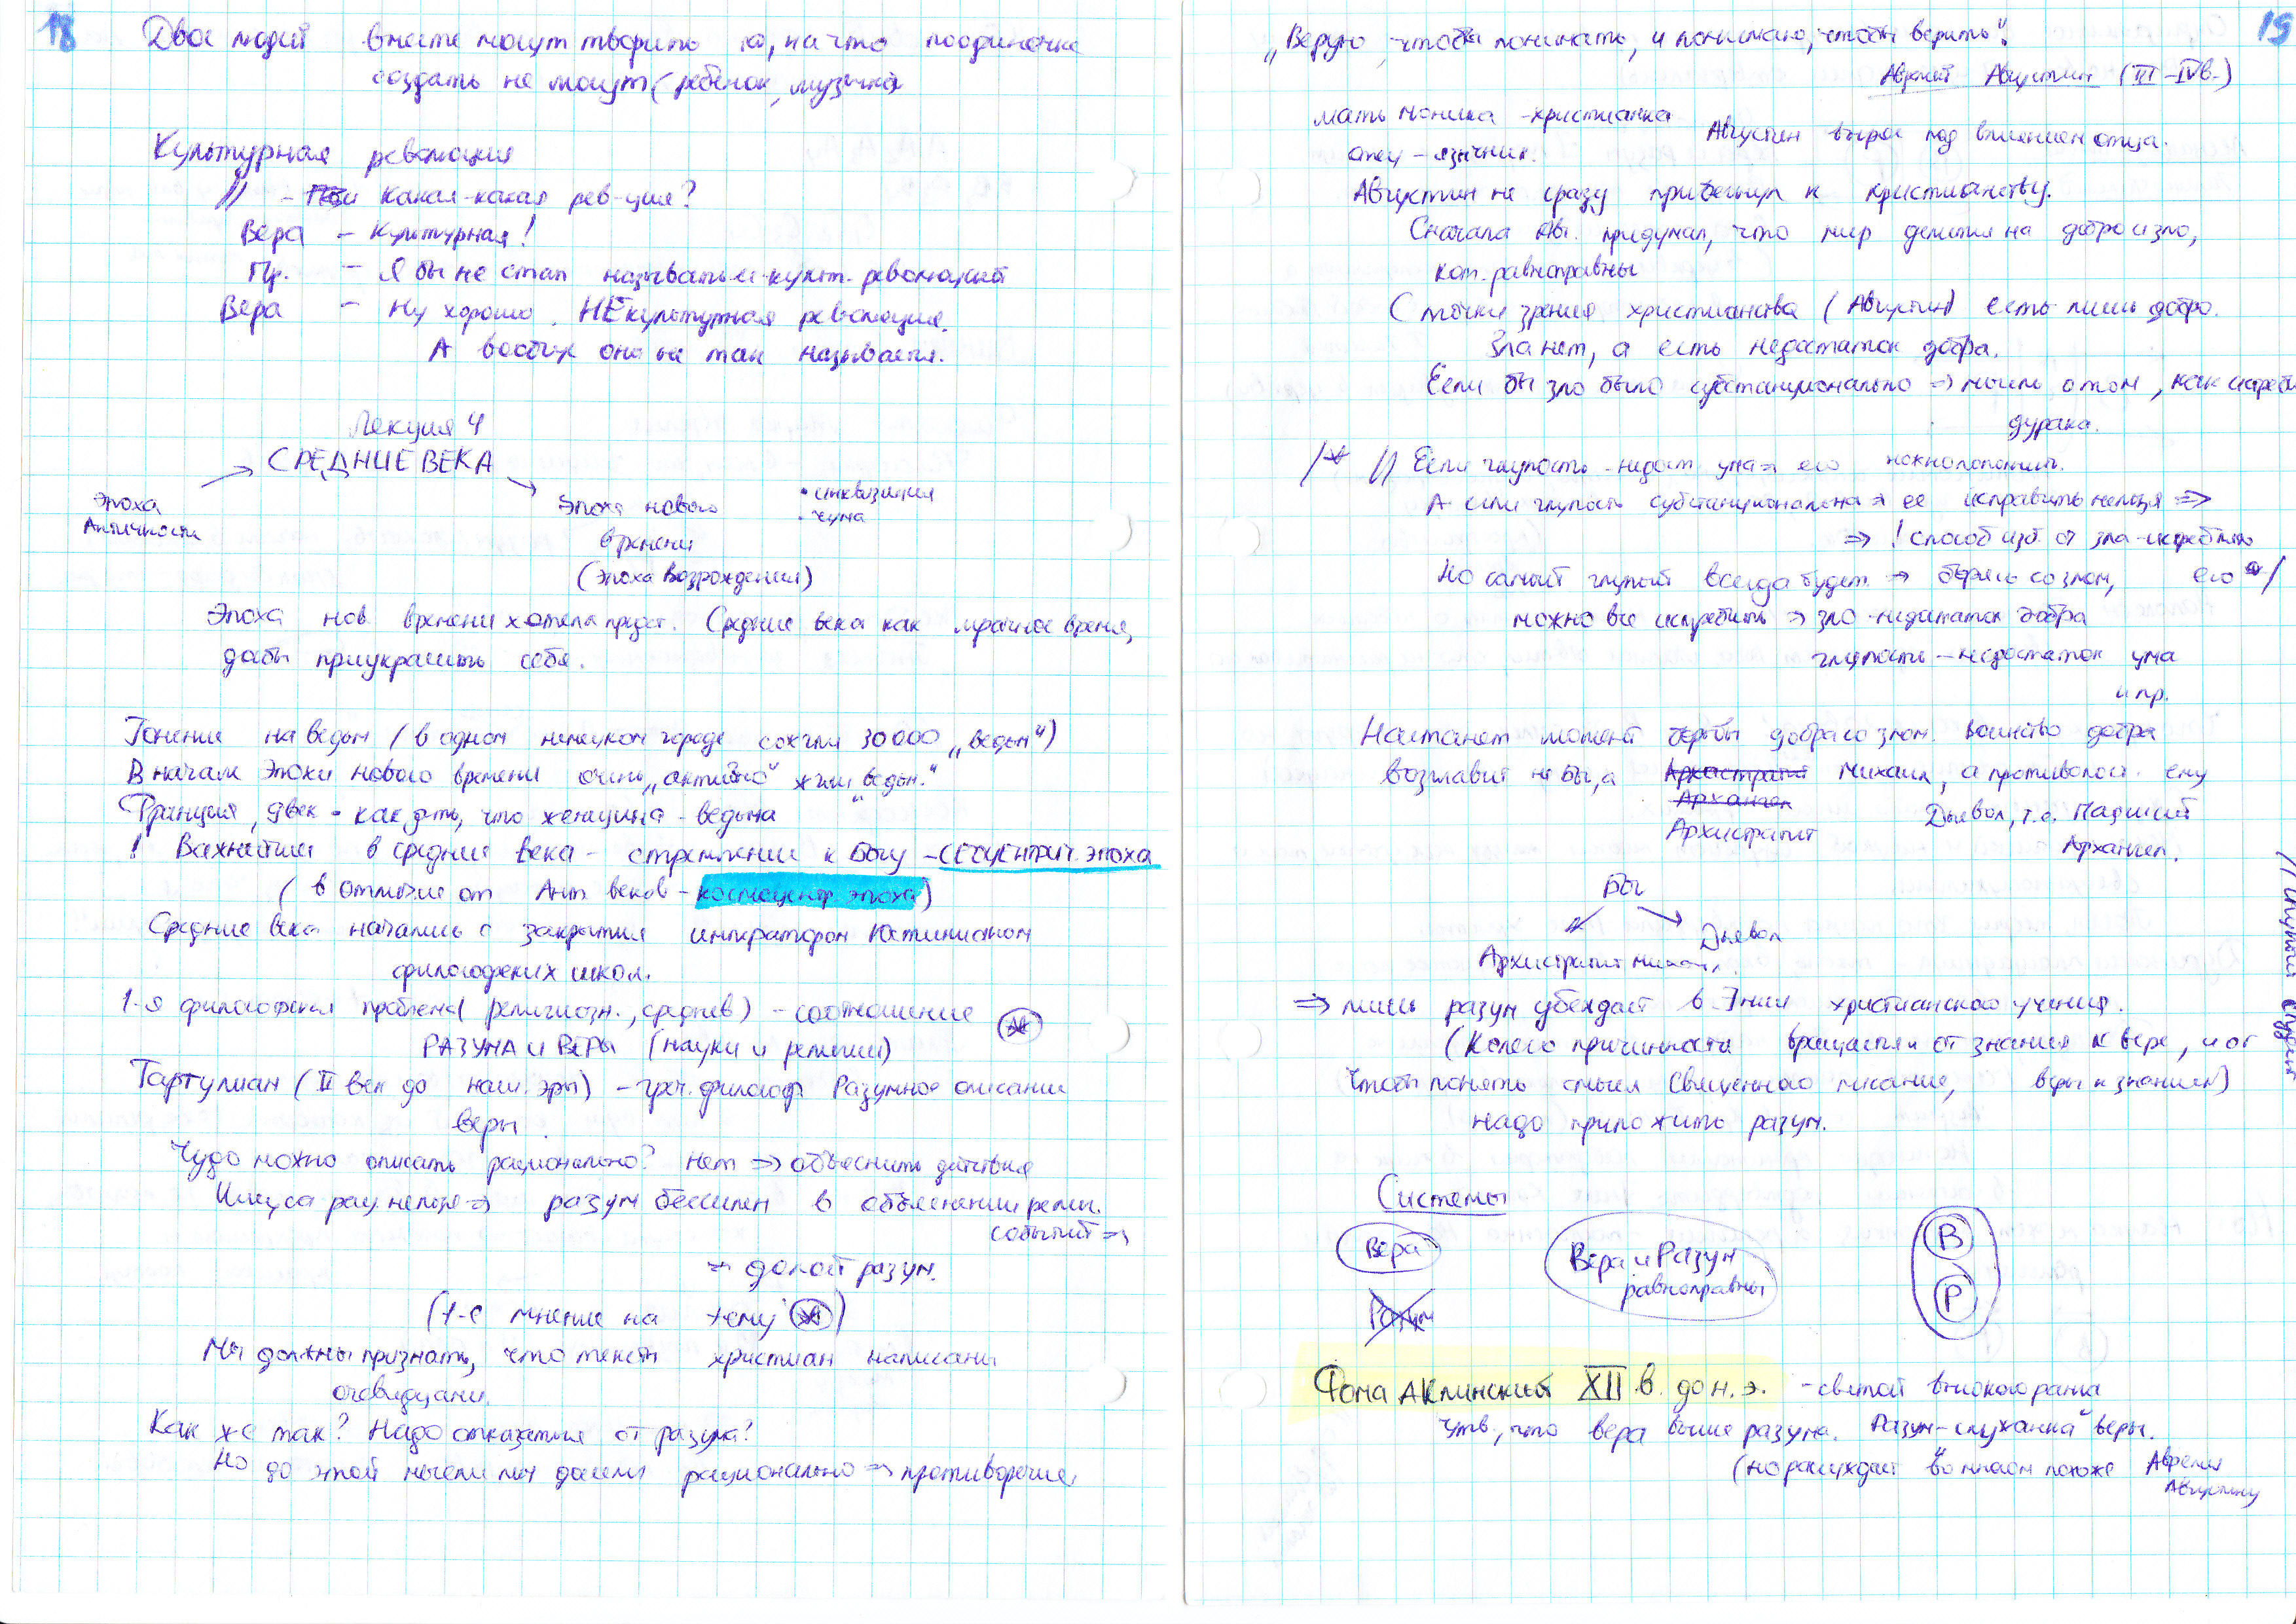 18
Двое людей вместе могут творить то, на что поодиночке
создать не могут (ребёнок, музыка)
Культурная революция
// - Какая-какая рев-ция?
Вера - Культурная!
Пр. - Я бы не стал называть её культ. революцией
Вера - Ну хорошо. НЕкультурная революция.
А вообще она не так называется.
Лекция 4
СРЕДНИЕ ВЕКА
Эпоха
Античности
Эпоха нового
времени
(Эпоха Возрождения)
• инквизиция
• чума
Эпоха нов. времени хотела предст. Средние века как мрачное время,
дабы приукрасить себя.
Гонение на ведьм (в одном немецком городе сожгли 30000 „ведьм“)
В начале Эпохи нового времени очень „активно“ жгли „ведьм.“
Франция, век - как д-ть, что женщина - ведьма
! Важнейшее в средние века - стремление к Богу - ЭПОХА
(в отличие от Ант. веков - космоцентр. эпоха)
Средние века начались с закрытия императором Юстинианом
философских школ.
1-я философская проблема (религиозн., среднев) - соотношение
РАЗУМА и ВЕРЫ (науки и религии)
Тартулиан (II век до наш. эры) - греч. философ. Разумное описание
веры.
Чудо можно описать рационально? Нет => объяснить действия
Иисуса рац. нельзя => разум бессилен в объяснении религ.
событий =>
=> долой разум.
(1-е мнение на тему)
Мы должны признать, что тексты христиан написаны
очевидцами.
Как же так? Надо отказаться от разума?
Но до этой мысли мы дошли рационально => противоречие.
19
„Верую, чтобы понимать, и понимаю, чтобы верить“.
Аврелий Августин (III-IV в.)
мать Моника - христианка
отец - язычник.
Августин вырос под влиянием отца.
Августин не сразу прибегнул к христианству.
Сначала Авг. придумал, что мир делится на добро и зло,
кот. равноправны
С точки зрения христианства (Августин) есть лишь добро.
Зла нет, а есть недостаток добра.
Если бы зло было субстанционально => мысль о том, как истреб
дурака.
/* // Если глупость - недост. ума => его можно пополнить.
А если глупость субстанциональна => её исправить нельзя =>
=> ! способ изб. от зла - истребить
Но самый глупый всегда будет => борясь со злом, его */
можно все истребить => зло - недостаток добра
глупость - недостаток ума
и пр.
Настанет момент борьбы добра со злом. Воинство добра
возглавит не Бог, а Архистратиг Михаил, а противопост. ему
Архангел
Архистратиг
Дьявол, т.е. Падший
Архангел.
Бог
Дьявол
Архистратиг Михаил.
=> лишь разум убеждает в христианского учения.
(Колесо причинности вращается от знания к вере, и от
Чтобы понять смысл Священного писания, веры к знанием)
надо приложить разум.
// глупый студент
Системы
Вера
Разум
Вера и Разум
равноправны
В
Р
Фома Аквинский XII в. до н.э. - святой высокого ранга
Утв., что вера выше разума. Разум - „служанка“ веры.
(но рассуждает во многом похоже Аврелия
Августину